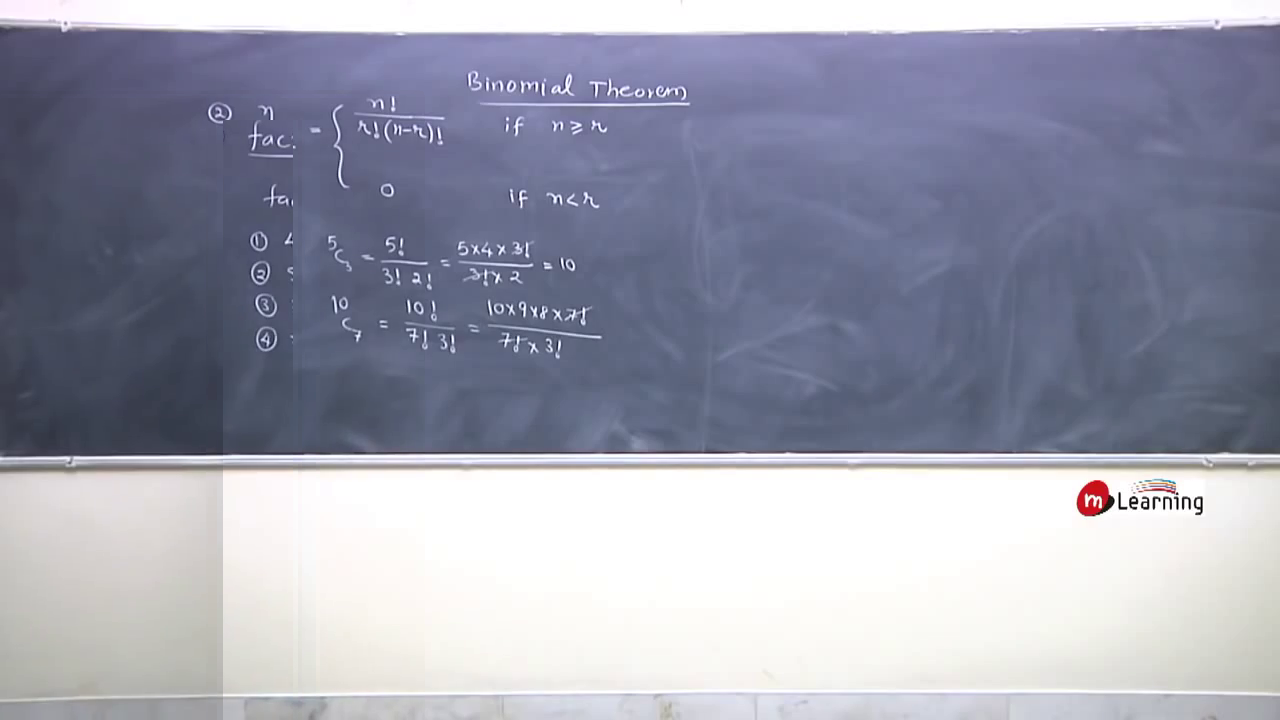 Binomial Theorem
② n
fac. = { n! / r!(n-r)! if n ≥ r
0 if n < r
①
⁵C₃ = 5! / 3! 2! = 5×4×3! / 3!×2 = 10
②
③
¹⁰C₇ = 10! / 7! 3! = 10×9×8×7! / 7!×3!
④
m Learning